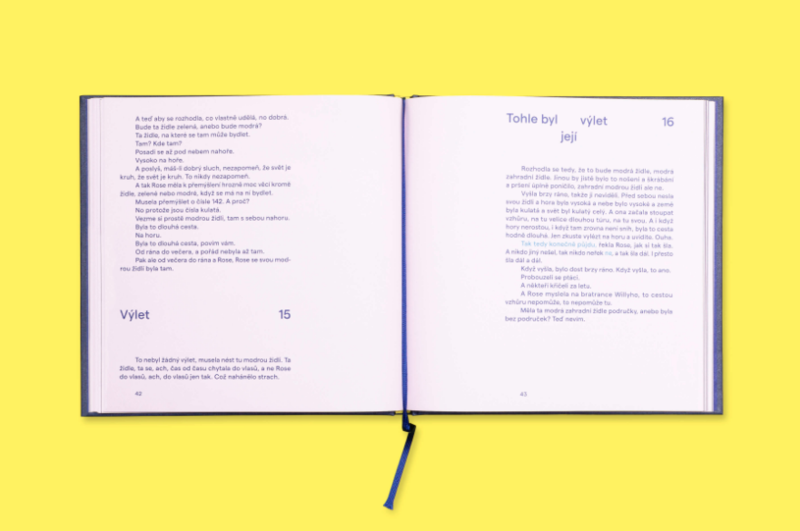 A teď aby se rozhodla, co vlastně udělá, no dobrá.
Bude ta židle zelená, anebo bude modrá?
Ta židle, na které se tam může bydlet.
Tam? Kde tam?
Posadí se až pod nebem nahoře.
Vysoko na hoře.
A poslyš, máš-li dobrý sluch, nezapomeň, že svět je
kruh, že svět je kruh. To nikdy nezapomeň.
A tak Rose měla k přemýšlení hrozně moc věcí kromě
židle, zelené nebo modré, když se má na ní bydlet.
Musela přemýšlet o čísle 142. A proč?
No protože jsou čísla kulatá.
Vezme si prostě modrou židli, tam s sebou nahoru.
Byla to dlouhá cesta.
Na horu.
Byla to dlouhá cesta, povím vám.
Od rána do večera, a pořád nebyla až tam.
Pak ale od večera do rána a Rose, Rose se svou mod-
rou židlí byla tam.
Výlet 15
To nebyl žádný výlet, musela nést tu modrou židli. Ta
židle, ta se, ach, čas od času chytala do vlasů, a ne Rose
do vlasů, ach, do vlasů jen tak. Což nahánělo strach.
42
Tohle byl výlet 16
její
Rozhodla se tedy, že to bude modrá židle, modrá
zahradní židle. Jinou by jistě bylo to nošení a škrábání
a pršení úplně poničilo, zahradní modrou židli ale ne.
Vyšla brzy ráno, takže ji neviděli. Před sebou nesla
svou židli a hora byla vysoká a nebe bylo vysoké a země
byla kulatá a svět byl kulatý celý. A ona začala stoupat
vzhůru, na tu velice dlouhou túru, na tu svou. A i když
hory nerostou, i když tam zrovna není sníh, byla to cesta
hodně dlouhá. Jen zkuste vylézt na horu a uvidíte. Ouha.
Tak tedy konečně půjdu, řekla Rose, jak si tak šla.
A nikdo jiný nešel, tak nikdo neřek no, a tak šla dál. I přesto
šla dál a dál.
Když vyšla, bylo dost brzy ráno. Když vyšla, to ano.
Probouzeli se ptáci.
A někteří křičeli za letu.
A Rose myslela na bratrance Willyho, to cestou
vzhůru nepomůže, to nepomůže tu.
Měla ta modrá zahradní židle područky, anebo byla
bez područek? Teď nevím.
43